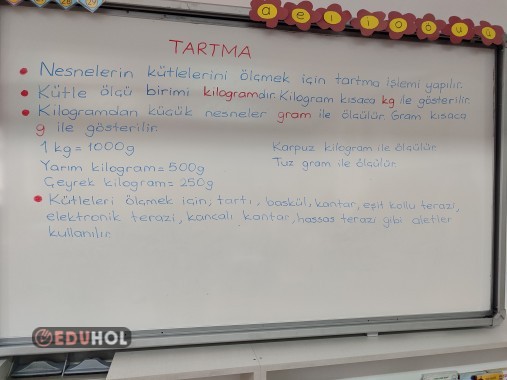 28 29
a e ı i o ö u ü
TARTMA
• Nesnelerin kütlelerini ölçmek için tartma işlemi yapılır.
• Kütle ölçü birimi kilogramdır. Kilogram kısaca kg ile gösterilir.
• Kilogramdan küçük nesneler gram ile ölçülür. Gram kısaca
g ile gösterilir.
1 kg = 1000g
Yarım kilogram = 500g
Çeyrek kilogram = 250g
Karpuz kilogram ile ölçülür.
Tuz gram ile ölçülür.
• Kütleleri ölçmek için, tartı, baskül, kantar, eşit kollu terazi,
elektronik terazi, kancalı kantar, hassas terazi gibi aletler
kullanılır.
EDUHOL